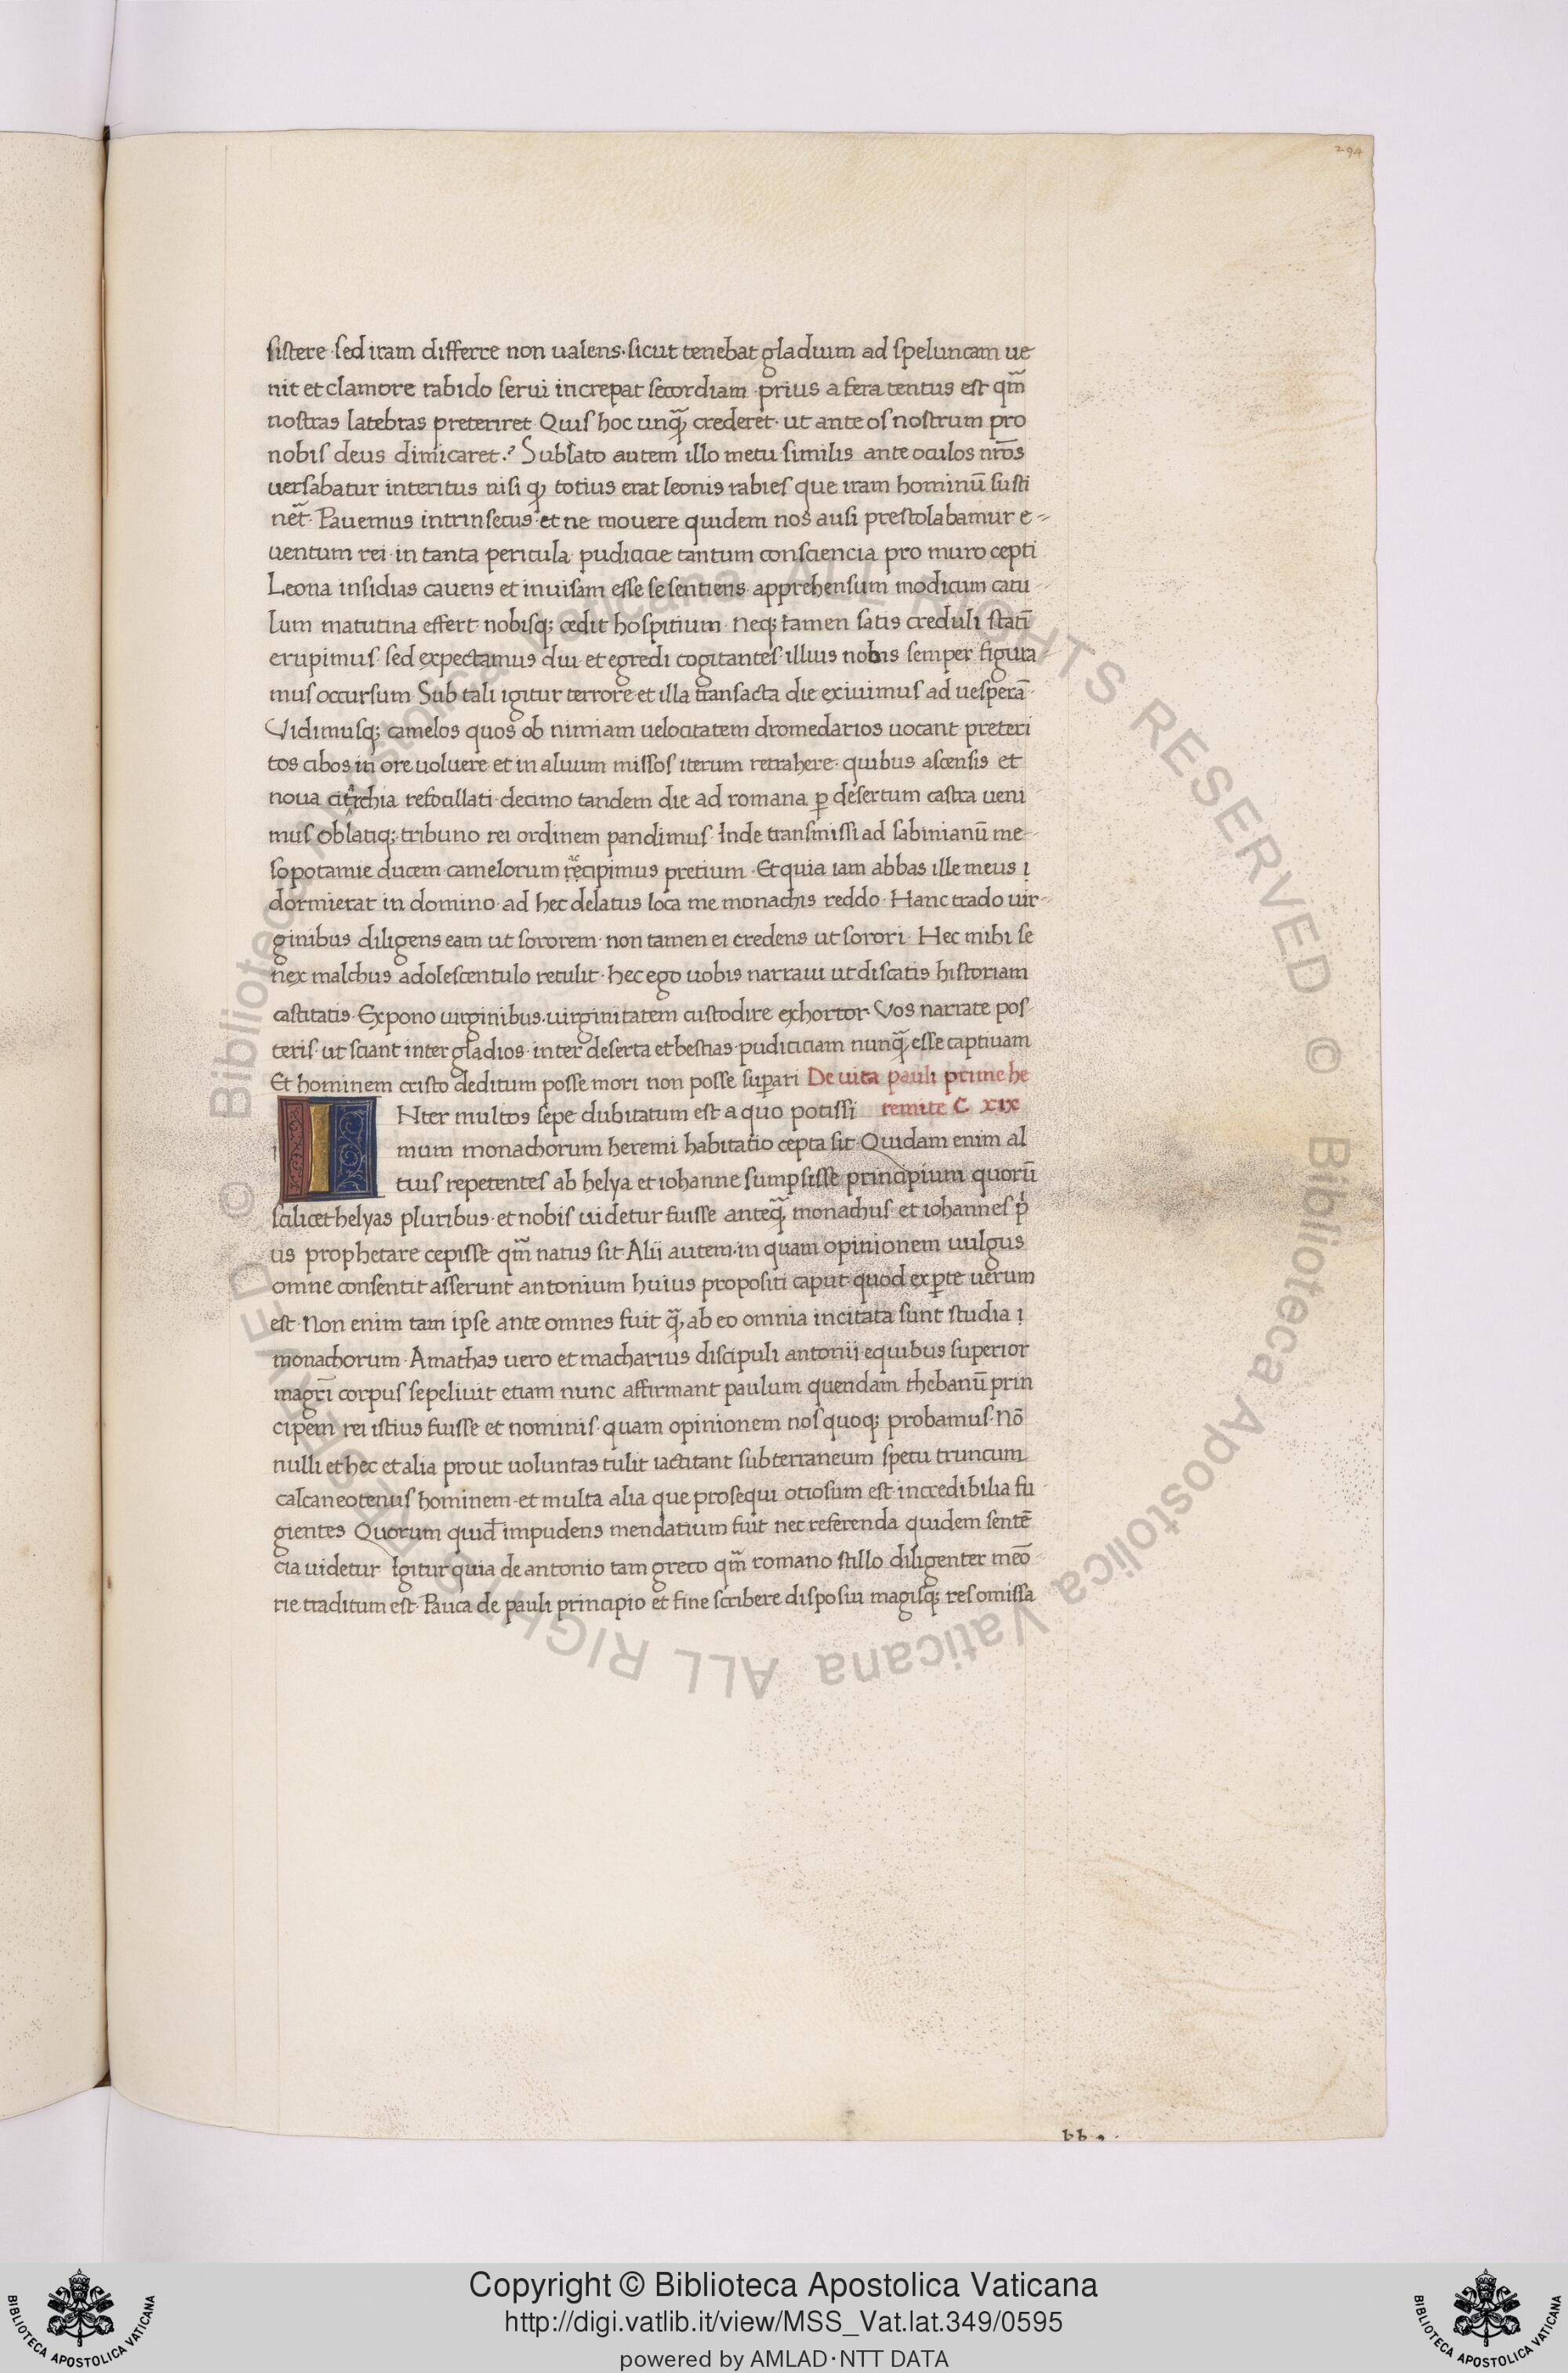 294
sistere · sed iram differre non ualens · sicut tenebat gladium ad speluncam ue
nit et clamore rabido serui increpat secordiam · prius a fera tentus est qm̃
nostras latebras preteriret · Quis hoc unq̃ crederet · ut ante os nostrum pro
nobis deus dimicaret ·? Sublato autem illo metu · similis ante oculos nr̃os
uersabatur interitus nisi q totius erat leonis rabies que iram hominũ susti
net̃ · Pauemus intrinsecus · et ne mouere quidem nos ausi prestolabamur e-
uentum rei · in tanta pericula · pudicicie tantum consciencia pro muro cepti
Leona insidias cauens et inuisam esse se sentiens · apprehensum modicum catu-
lum matutina effert · nobisq; cedit hospitium · Neq; tamen satis creduli statĩ
erupimus · sed expectamus diu · et egredi cogitantes · illius nobis semper figura-
mus occursum · Sub tali igitur terrore · et illa transacta die exiuimus ad uesperã ·
Vidimusq; camelos quos ob nimiam uelocitatem dromedarios uocant · preteri
tos cibos in ore uoluere · et in aluum missos iterum retrahere · quibus ascensis et
noua citrchia refocillati · decimo tandem die ad romana p̱ desertum castra ueni
mus oblatiq; · tribuno rei ordinem pandimus · Inde transmissi ad sabinianũ me-
sopotamie ducem · camelorum recipimus pretium · Et quia iam abbas ille meus i
dormierat in domino · ad hec delatus loca me monachis reddo · Hanc trado uir-
ginibus diligens eam ut sororem · non tamen ei credens ut sorori · Hec mihi se
nex malchus adolescentulo retulit · hec ego uobis narraui ut discatis historiam
castitatis · Expono uirginibus · uirginitatem custodire exhortor · Vos narrate pos-
teris · ut sciant inter gladios · inter deserta et bestias · pudiciciam nunq̃ esse captiuam
Et hominem cristo deditum posse mori non posse sup̱ari De uita pauli prime he
INter multos sepe dubitatum est a quo potissi remite C xix
mum monachorum heremi habitatio cepta sit · Quidam enim al
tius repetentes ab helya et iohanne sumpsisse principium quorũ
scilicet helyas pluribus · et nobis uidetur fuisse anteq̃ monachus · et iohannes p̓
us prophetare cepisse qm̃ natus sit · Alii autem · in quam opinionem uulgus
omne consentit asserunt antonium huius propositi caput · quod ex p̱te uerum
est · Non enim tam ipse ante omnes fuit q̃ ab eo omnia incitata sunt studia i
monachorum · Amathas uero et macharius discipuli antonii · e quibus superior
magr̃i corpus sepeliuit etiam nunc affirmant paulum quendam thebanũ prin
cipem rei istius fuisse et nominis · quam opinionem nos quoq; probamus · Nõ
nulli et hec et alia prout uoluntas tulit iactitant subterraneum specu truncum
calcaneotenus hominem · et multa alia que prosequi otiosum est · incredibilia fu-
gientes Quorum quid̃ impudens mendatium fuit nec referenda quidem sentẽ
cia uidetur Igitur quia de antonio tam greco qm̃ romano stillo diligenter meõ-
rie traditum est · Pauca de pauli principio et fine scribere disposui magisq; res omissa
© Biblioteca Apostolica Vaticana ALL RIGHTS RESERVED © Biblioteca Apostolica Vaticana ALL RIGHTS RESERVED
Copyright © Biblioteca Apostolica Vaticana
http://digi.vatlib.it/view/MSS_Vat.lat.349/0595
powered by AMLAD·NTT DATA
BIBLIOTECA APOSTOLICA VATICANA
BIBLIOTECA APOSTOLICA VATICANA